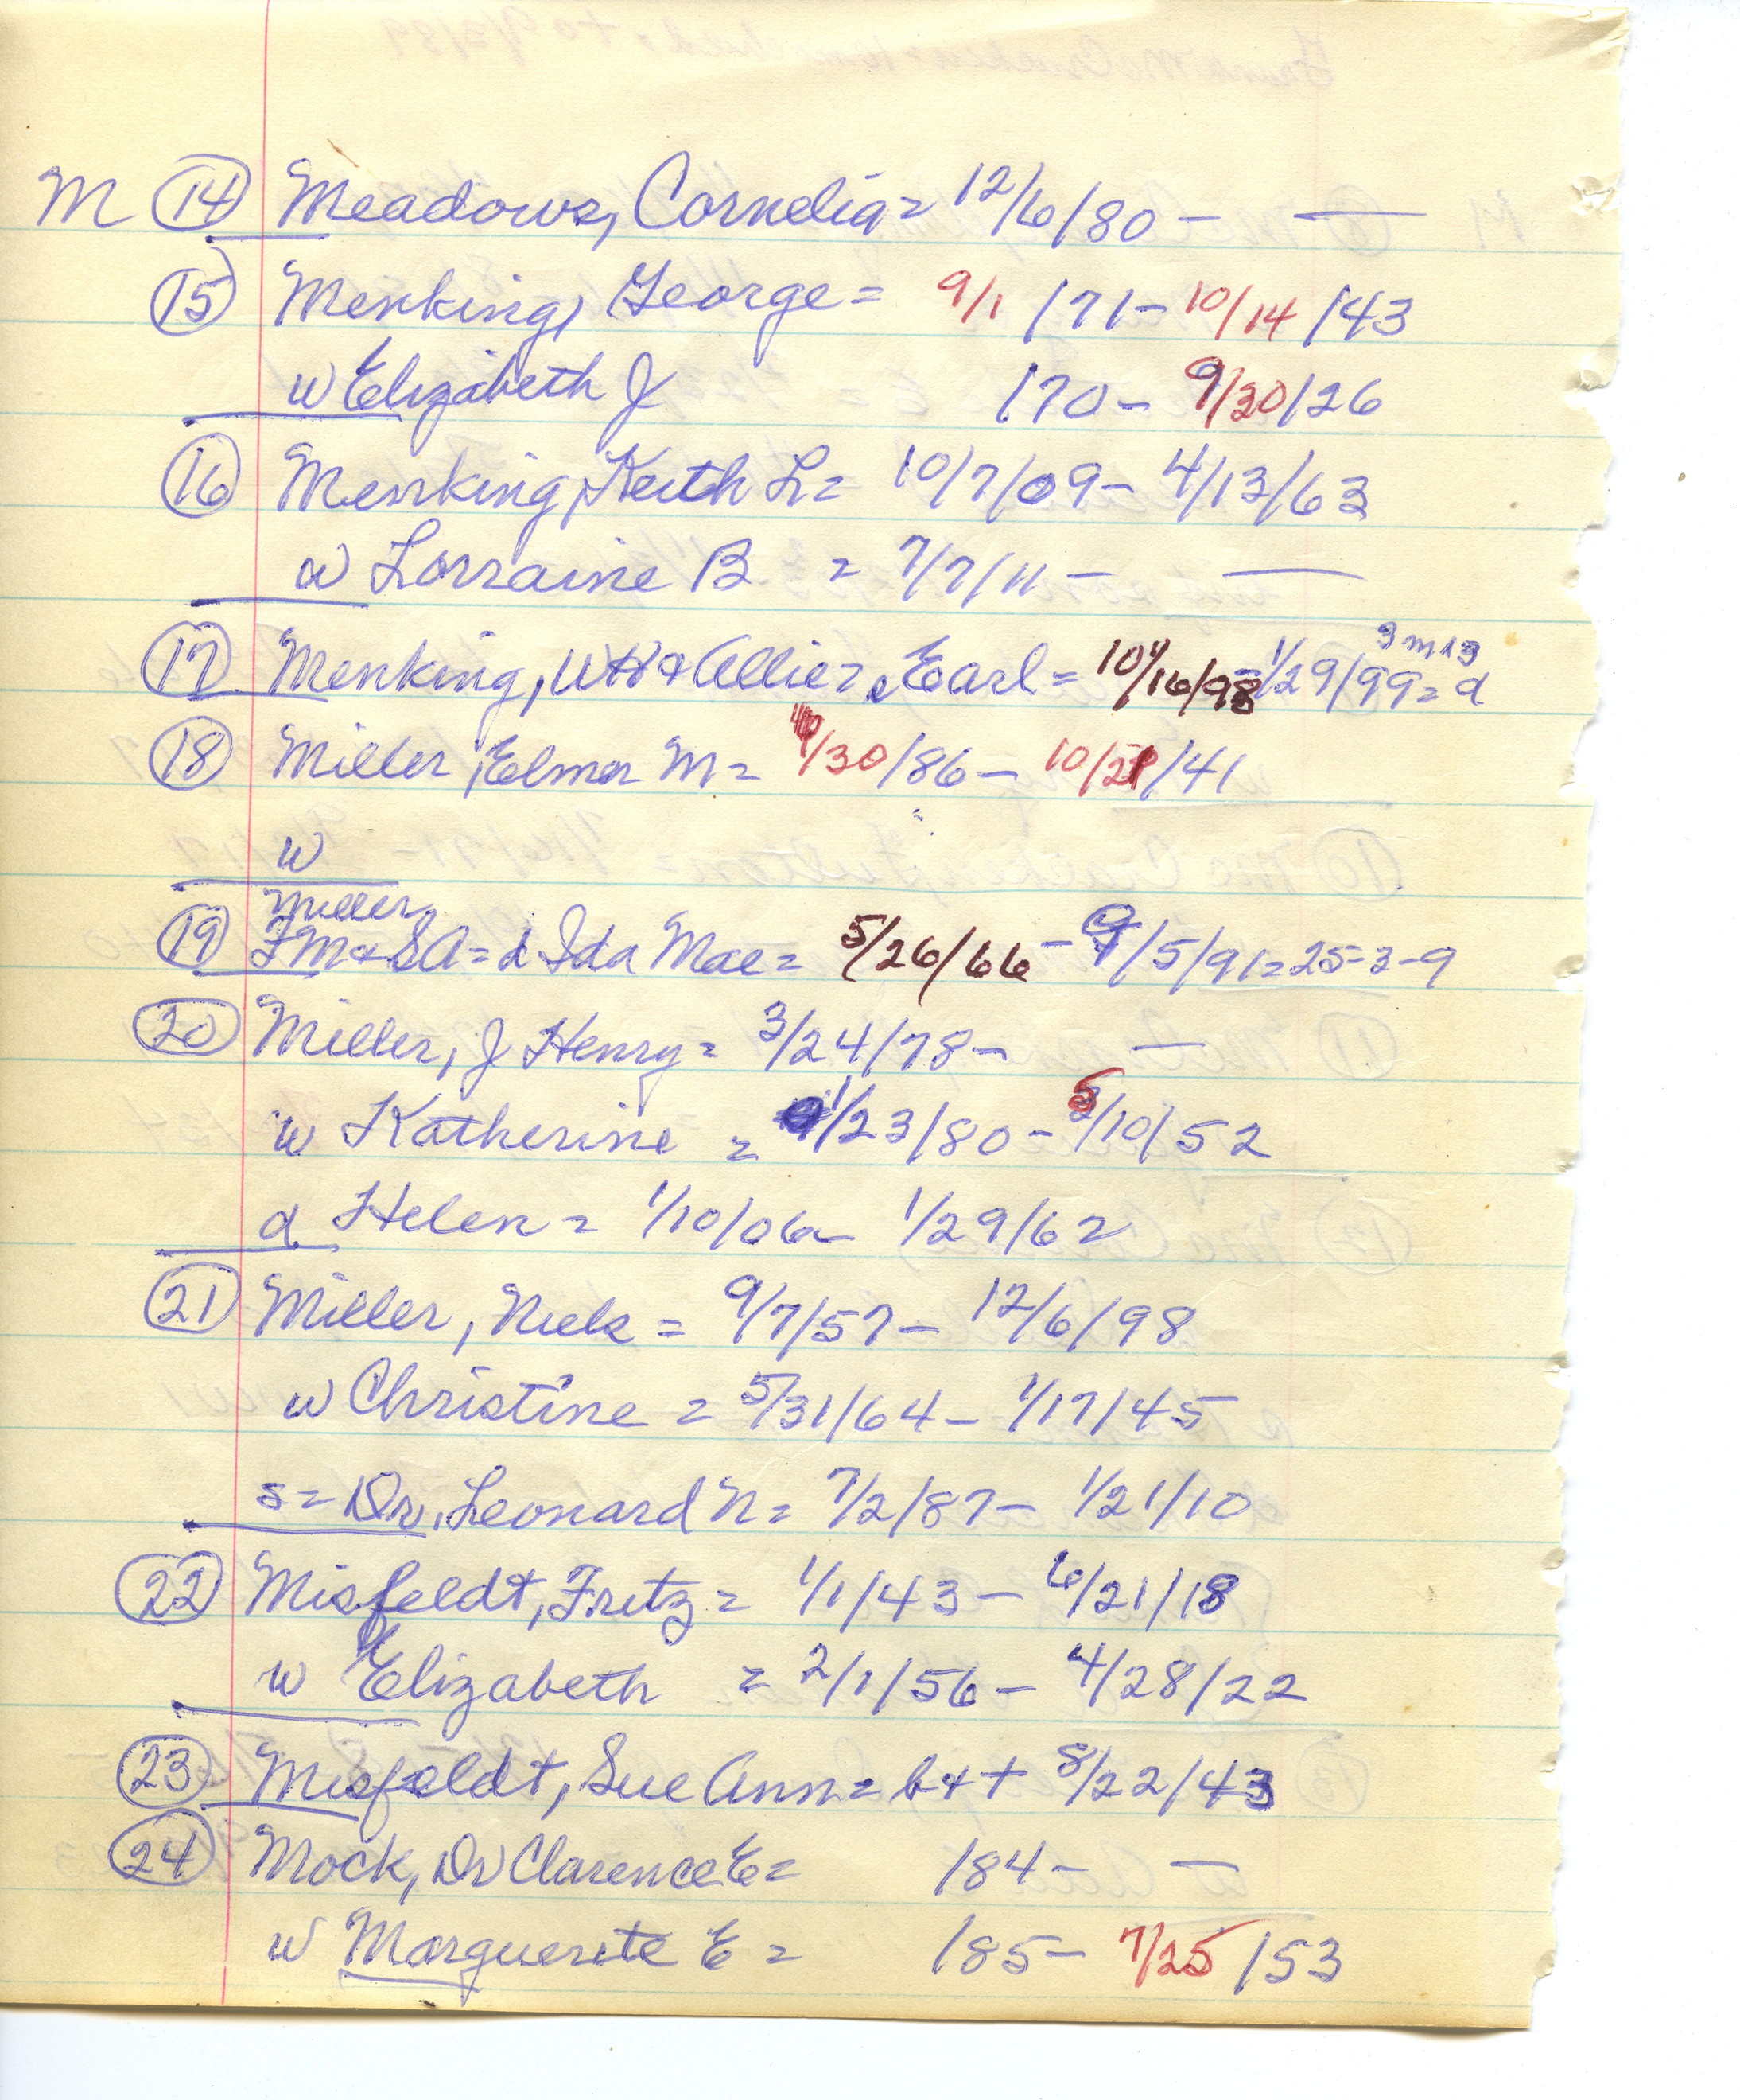 M (14) Meadows, Cornelia = 12/6/80 - —
(15) Menking, George = 9/1/71 - 10/14/43
w Elizabeth J /70 - 9/30/26
(16) Menking, Keith L = 10/7/09 - 4/13/63
w Lorraine B = 7/7/11 - —
3 m 13
(17) Menking, WH & Allie = Earl = 10/16/98 - 1/29/99 = d
(18) Miller, Elmer M = /30/86 - 10/21/41
w
Miller,
(19) FM & SA = d Ida Mae = 5/26/66 - 9/5/91 = 25-3-9
(20) Miller, J Henry = 3/24/78 - —
w Katherine = 1/23/80 - 5/10/52
d Helen = 1/10/06 - 1/29/62
(21) Miller, Nick = 9/7/57 - 12/6/98
w Christine = 5/31/64 - 1/17/45
s = Dr. Leonard N = 7/2/87 - 1/21/10
(22) Misfeldt, Fritz = 1/1/43 - 6/21/18
w Elizabeth = 2/1/56 - 4/28/22
(23) Misfeldt, Sue Ann = b & + 8/22/43
(24) Mock, Dr Clarence E = /84 - —
w Marguerite E = /85 - 7/25/53